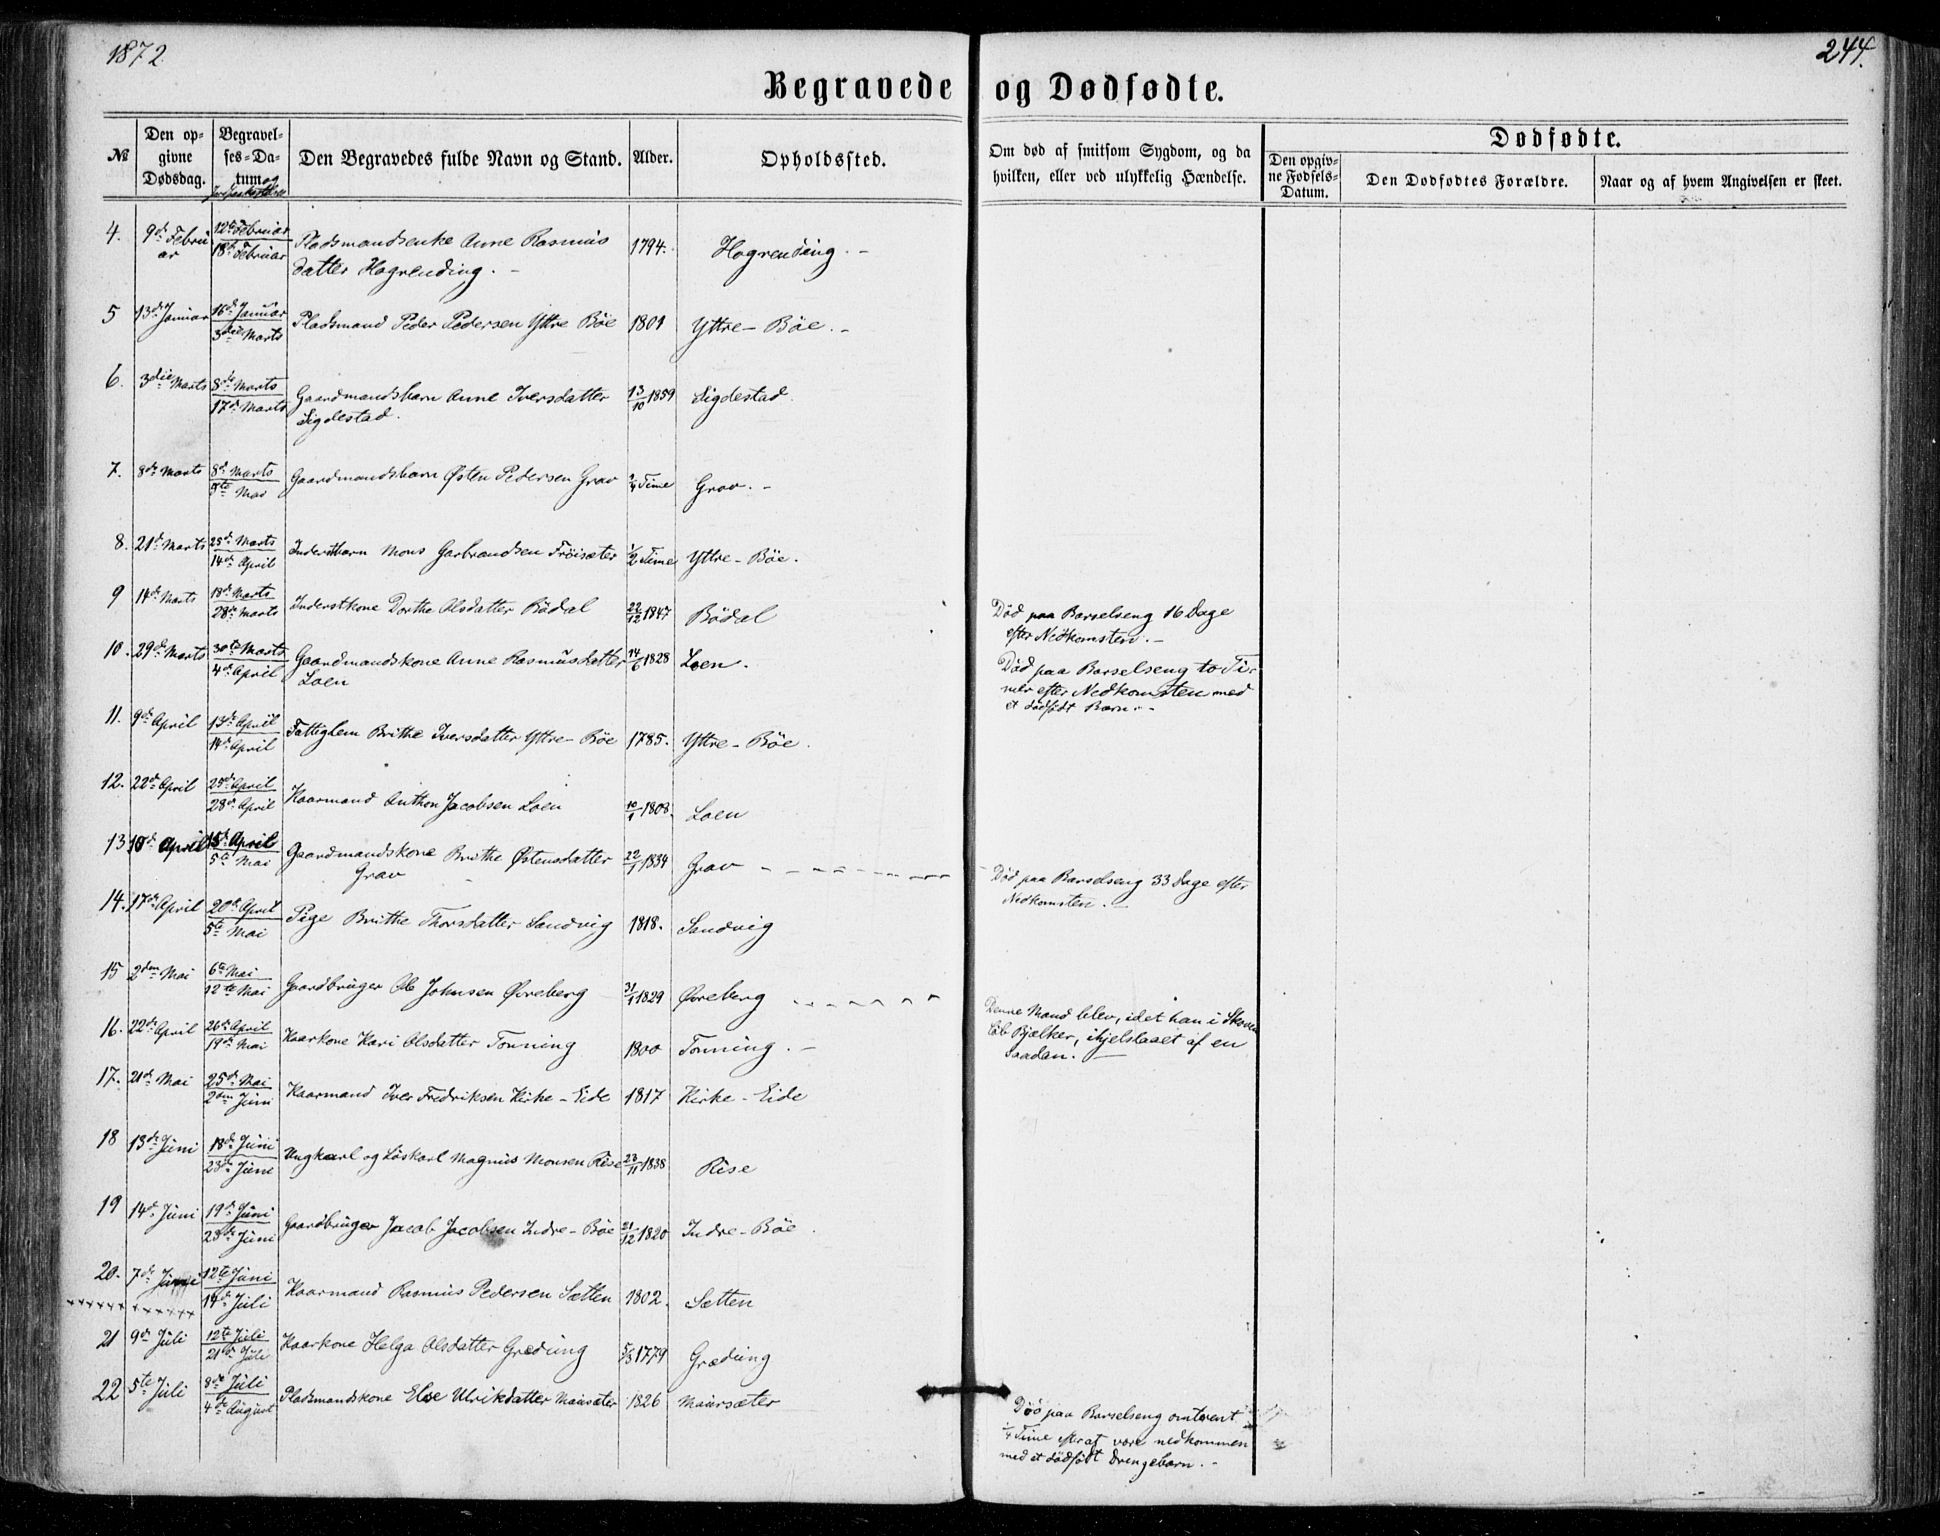 1872
244.
Begravede og Dødfødte.
№
Den opgivne Dødsdag.
Begravelses-Datum og
Den Begravedes fulde Navn og Stand.
Alder.
Opholdssted.
Om død af smitsom Sygdom, og da hvilken, eller ved ulykkelig Hændelse.
Dødfødte.
Den opgivne Fødsels-Datum.
Den Dødfødtes Forældre.
Naar og af hvem Angivelsen er skeet.
4. 9de Februar 12te Februar 18de Februar Pladsmandsenke Anne Rasmusdatter Hogrending. 1794. Hogrending.
5 13de Januar 16de Januar 3die Marts Pladsmand Peder Pedersen Yttre Böe 1801 Yttre-Böe.
6. 3die Marts 8de Marts 17de Marts Gaardmandsbarn Anne Iversdatter Sigdestad. 13/10 1859 Sigdestad.
7. 8de Marts 8de Marts 5te Mai Gaardmandsbarn Østen Pedersen Grav Time Grav.
8. 21de Marts 25de Marts 14de April Inderstbarn Mons Garbrandsen Fröisæter 1/2 Time Yttre-Böe.
9 14de Marts 18de Marts 28de Marts Inderstkone Dorthe Olsdatter Bödal 22/12 1847 Bödal Död paa Barselseng 16 Dage efter Nedkomsten.
10. 29de Marts 30te Marts 4de April Gaardmandskone Anne Rasmusdatter Loen 14/6 1828 Loen. Död paa Barselseng to Timer efter Nedkomsten med et dödfödt Barn.
11. 9de April 13de April 14de April Fattiglem Brithe Iversdatter Yttre-Böe 1785. Yttre-Böe.
12. 22de April 25de April 28de April Kaarmand Anthon Jacobsen Loen 10/1 1808. Loen
13 10de April 15de April 5te Mai Gaardmandskone Brithe Østensdatter Grav 22/1 1834 Grav Död paa Barselseng 33 Dage efter Nedkomsten.
14. 17de April 20de April 5te Mai Pige Brithe Thorsdatter Sandvig 1818. Sandvig
15 2den Mai 6te Mai 12te Mai Gaardbruger Ole Johnsen Øvreberg 31/1 1829 Øvreberg Denne Mand blev, idet han i Skoven löb Bjælker, ihjelslaaet af en saadan.
16. 22de April 26de April 19de Mai Kaarkone Kari Olsdatter Tonning 1800 Tonning.
17. 21de Mai 25de Mai 2den Juni Kaarmand Iver Fredriksen Kirke-Eide 1817 Kirke-Eide
18 13de Juni 18de Juni 23de Juni Ungkarl og Löskarl Magnus Monsen Rise 23/11 1838 Rise
19 14de Juni 19de Juni 23de Juni Gaardbruger Jacob Jacobsen Indre-Böe 21/12 1820 Indre-Böe.
20. 7de Juni 12te Juni 14de Juli Kaarmand Rasmus Pedersen Sætten 1802. Sætten
21 9de Juli 12te Juli 21de Juli Kaarkone Helga Olsdatter Græding 5/3 1779 Græding
22 5te Juli 8de Juli 4de August Pladsmandskone Else Ulrikdatter Maursæter 1826 Maursæter Död paa Barselseng omtrent 1/4 Time efterat være nedkommen med et dödfödt Drengebarn.